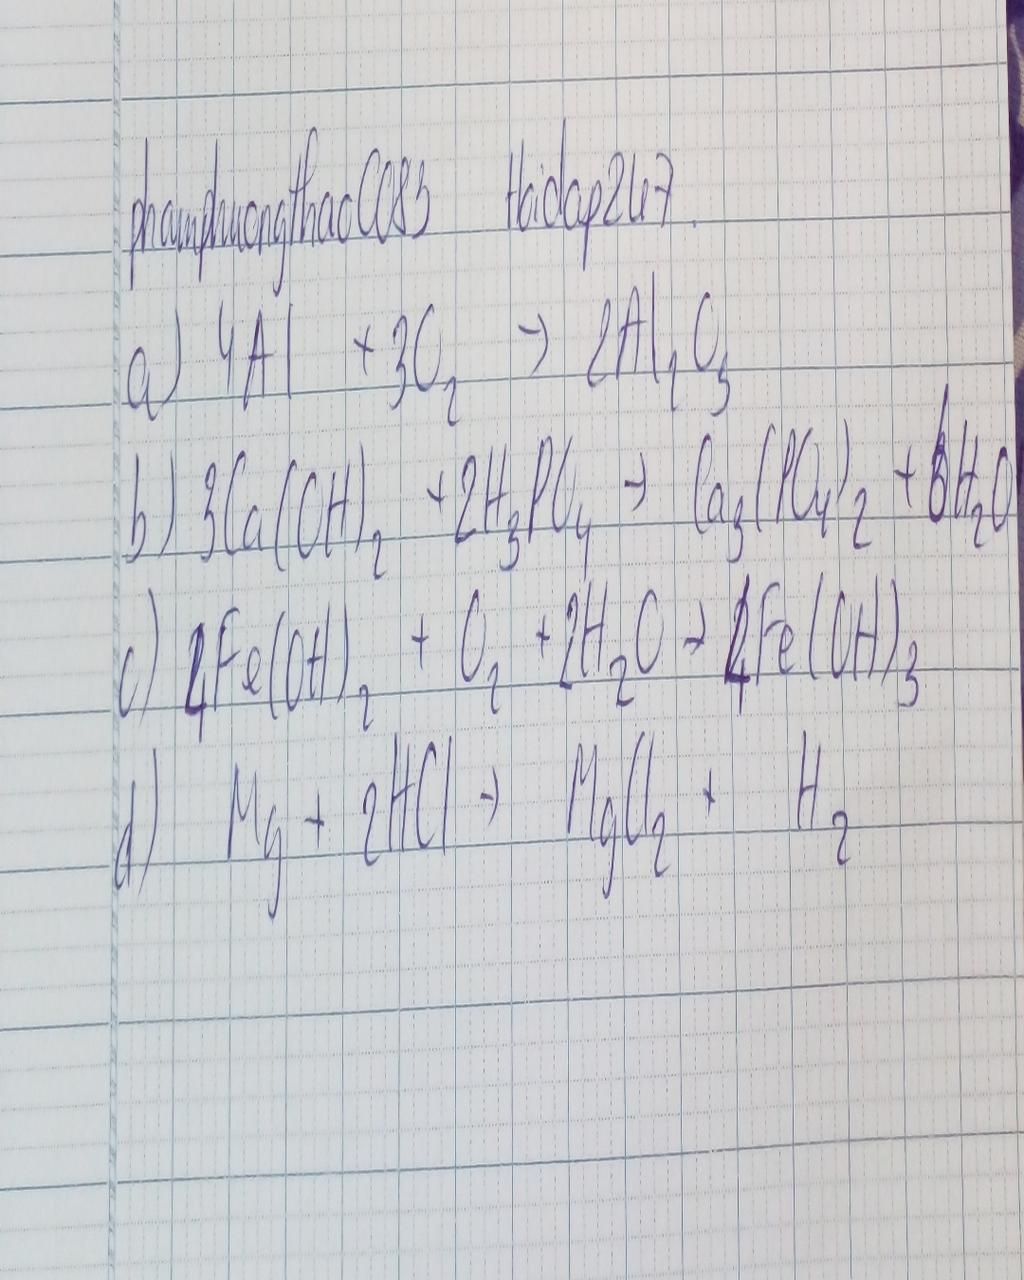 phamphuongthao0083 Hoidap247.
a) 4Al + 3O₂ → 2Al₂O₃
b) 3Ca(OH)₂ + 2H₃PO₄ → Ca₃(PO₄)₂ + 6H₂O
c) 4Fe(OH)₂ + O₂ + 2H₂O → 4Fe(OH)₃
d) Mg + 2HCl → MgCl₂ + H₂